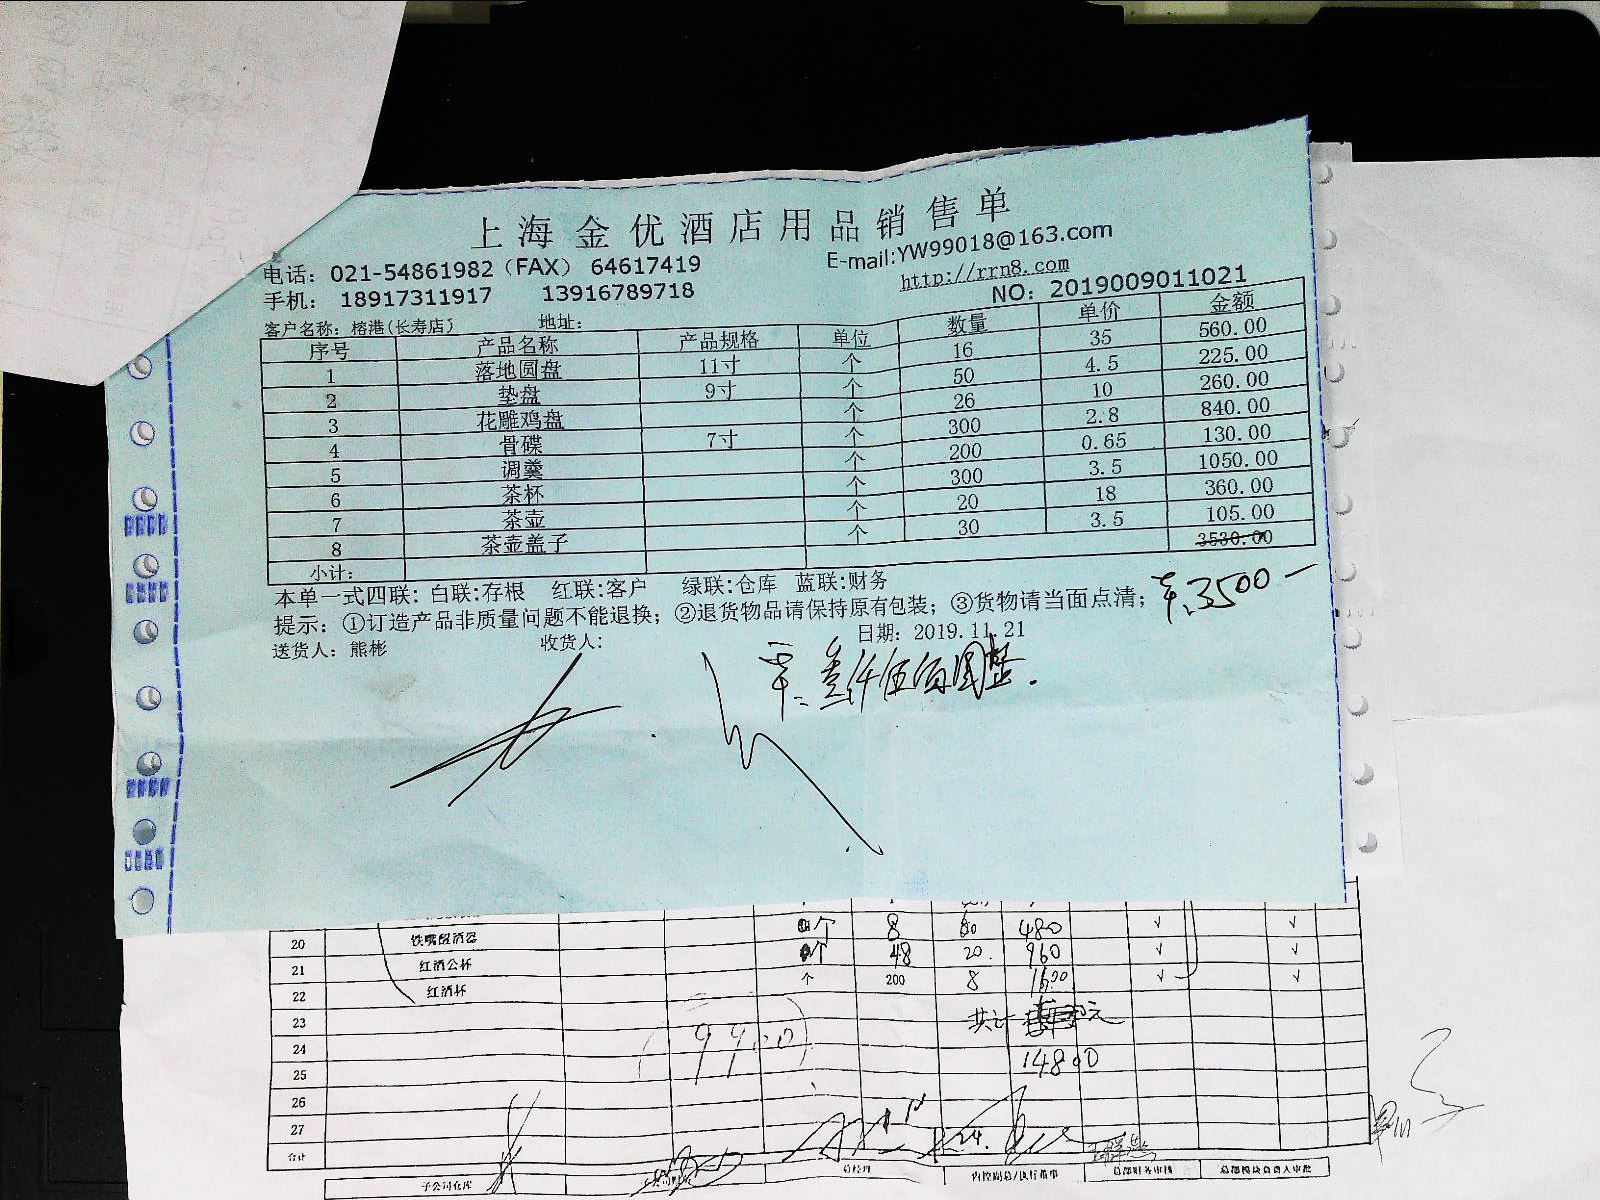 上海金优酒店用品销售单
电话：021-54861982（FAX） 64617419
E-mail:YW99018@163.com
手机： 18917311917 13916789718
http://rrn8.com
NO：2019009011021
客户名称：榕港(长寿店) 地址：
序号 产品名称 产品规格 单位 数量 单价 金额
1 落地圆盘 11寸 个 16 35 560.00
2 垫盘 9寸 个 50 4.5 225.00
3 花雕鸡盘 个 26 10 260.00
4 骨碟 7寸 个 300 2.8 840.00
5 调羹 个 200 0.65 130.00
6 茶杯 个 300 3.5 1050.00
7 茶壶 个 20 18 360.00
8 茶壶盖子 个 30 3.5 105.00
小计： 3530.00
本单一式四联：白联:存根 红联:客户 绿联:仓库 蓝联:财务
提示：①订造产品非质量问题不能退换；②退货物品请保持原有包装；③货物请当面点清；
¥3500-
送货人：熊彬 收货人： 日期：2019.11.21
叁仟伍佰圆整.
20 铁嘴醒酒器 个 8 60 480 √ √
21 红酒公杯 个 48 20. 960 √ √
22 红酒杯 个 200 8 1600 √ √
23
共计 元
24
(9900)
14800
25
26
27
合计
子公司仓库 总经理 内控副总/执行董事 总部财务审核 总部模块负责人审批